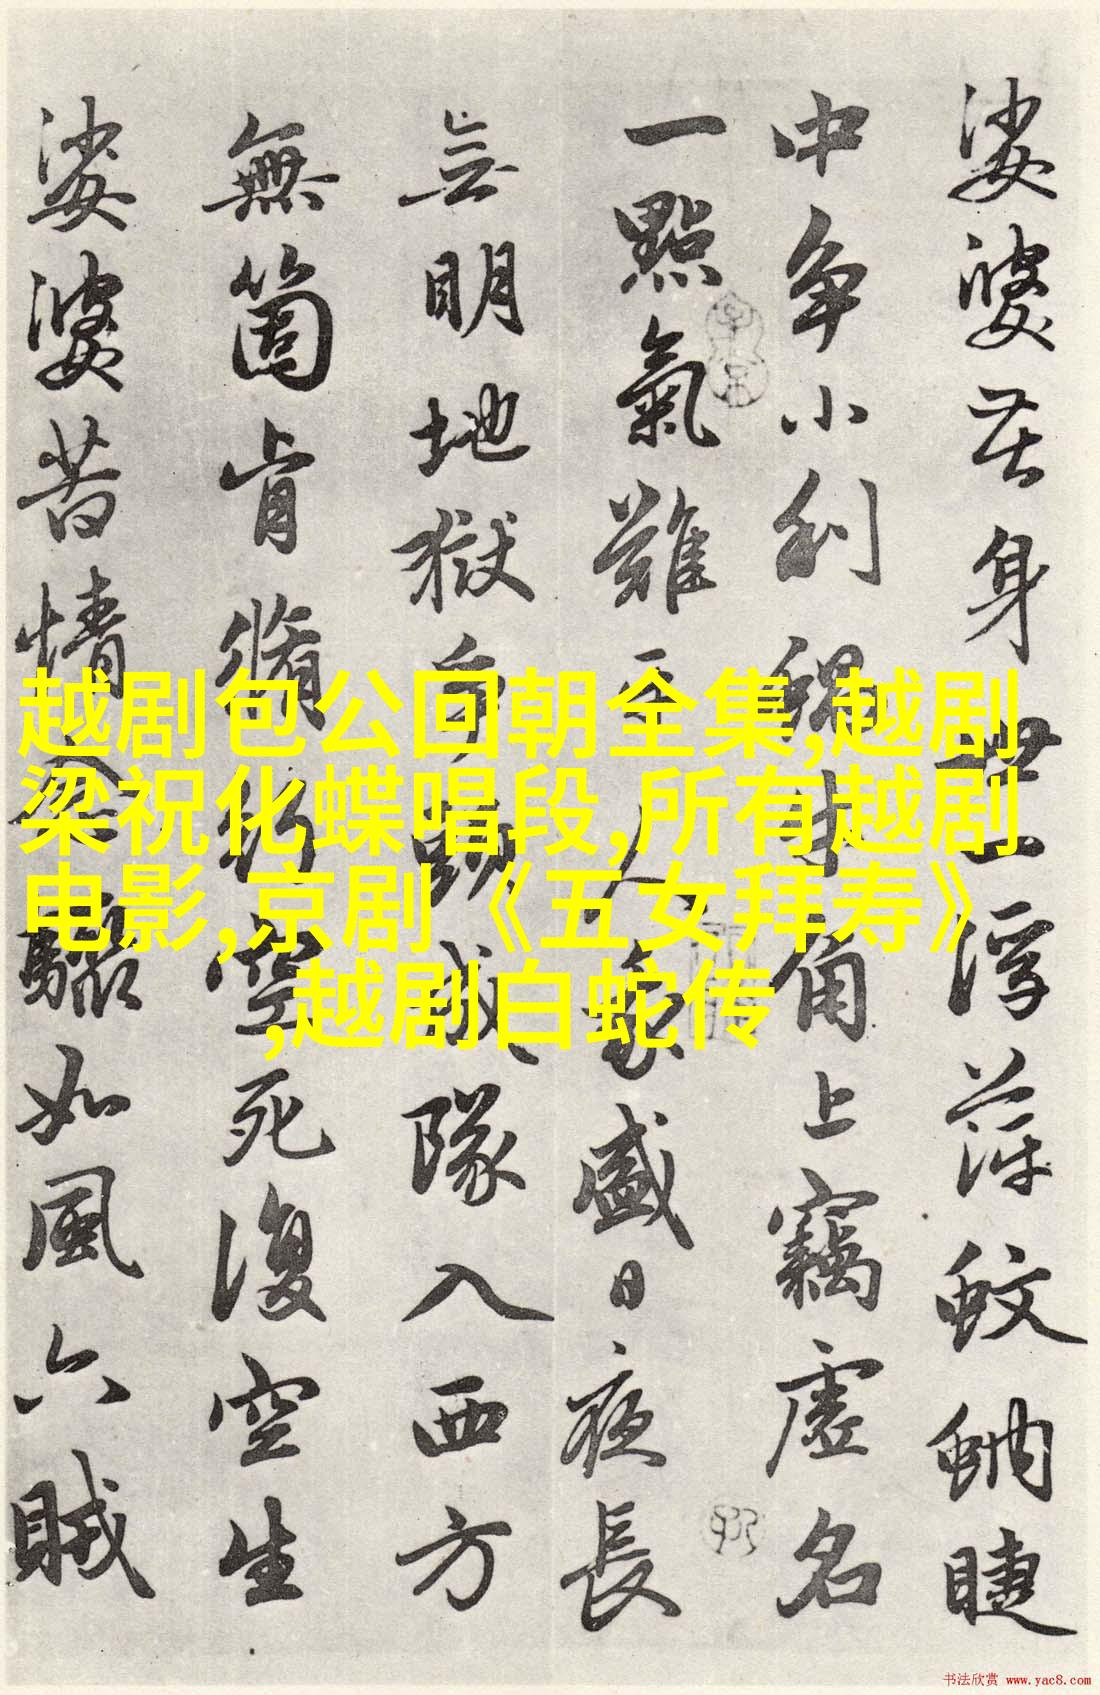 娑婆苦身世一浮萍蚊蚋睫
中争小利蝸牛角上竊虛名
一點氣難平人我盛日夜長
无明地獄爭成隊入西方
無箇肯脩行空死復空生
娑婆苦情驟如風六賊
越剧包公回朝全集,越剧
梁祝化蝶唱段,所有越剧
电影,京剧《五女拜寿》
,越剧白蛇传
书法欣赏 www.yac8.com